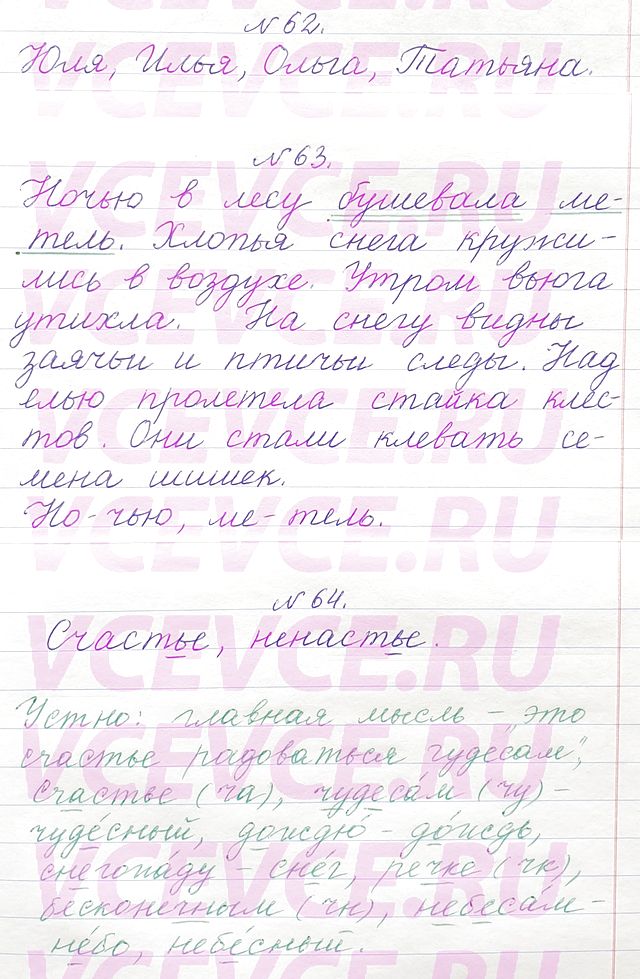 № 62.
Юля, Илья, Ольга, Татьяна.
№ 63.
Ночью в лесу бушевала ме-
тель. Хлопья снега кружи-
лись в воздухе. Утром вьюга
утихла. На снегу видны
заячьи и птичьи следы. Над
елью пролетела стайка клес-
тов. Они стали клевать се-
мена шишек.
Но-чью, ме-тель.
№ 64.
Счастье, ненастье.
Устно: главная мысль – "это
счастье радоваться чудесам",
Счастье (ча), чудеса́м (чу) –
чуде́сный, дождю́ – до́ждь,
снегопа́ду – сне́г, речке (чк),
бесконечным (чн), небеса́м –
не́бо, небе́сный.
VCEVCE.RU
VCEVCE.RU
VCEVCE.RU
VCEVCE.RU
VCEVCE.RU
VCEVCE.RU
VCEVCE.RU
VCEVCE.RU
VCEVCE.RU